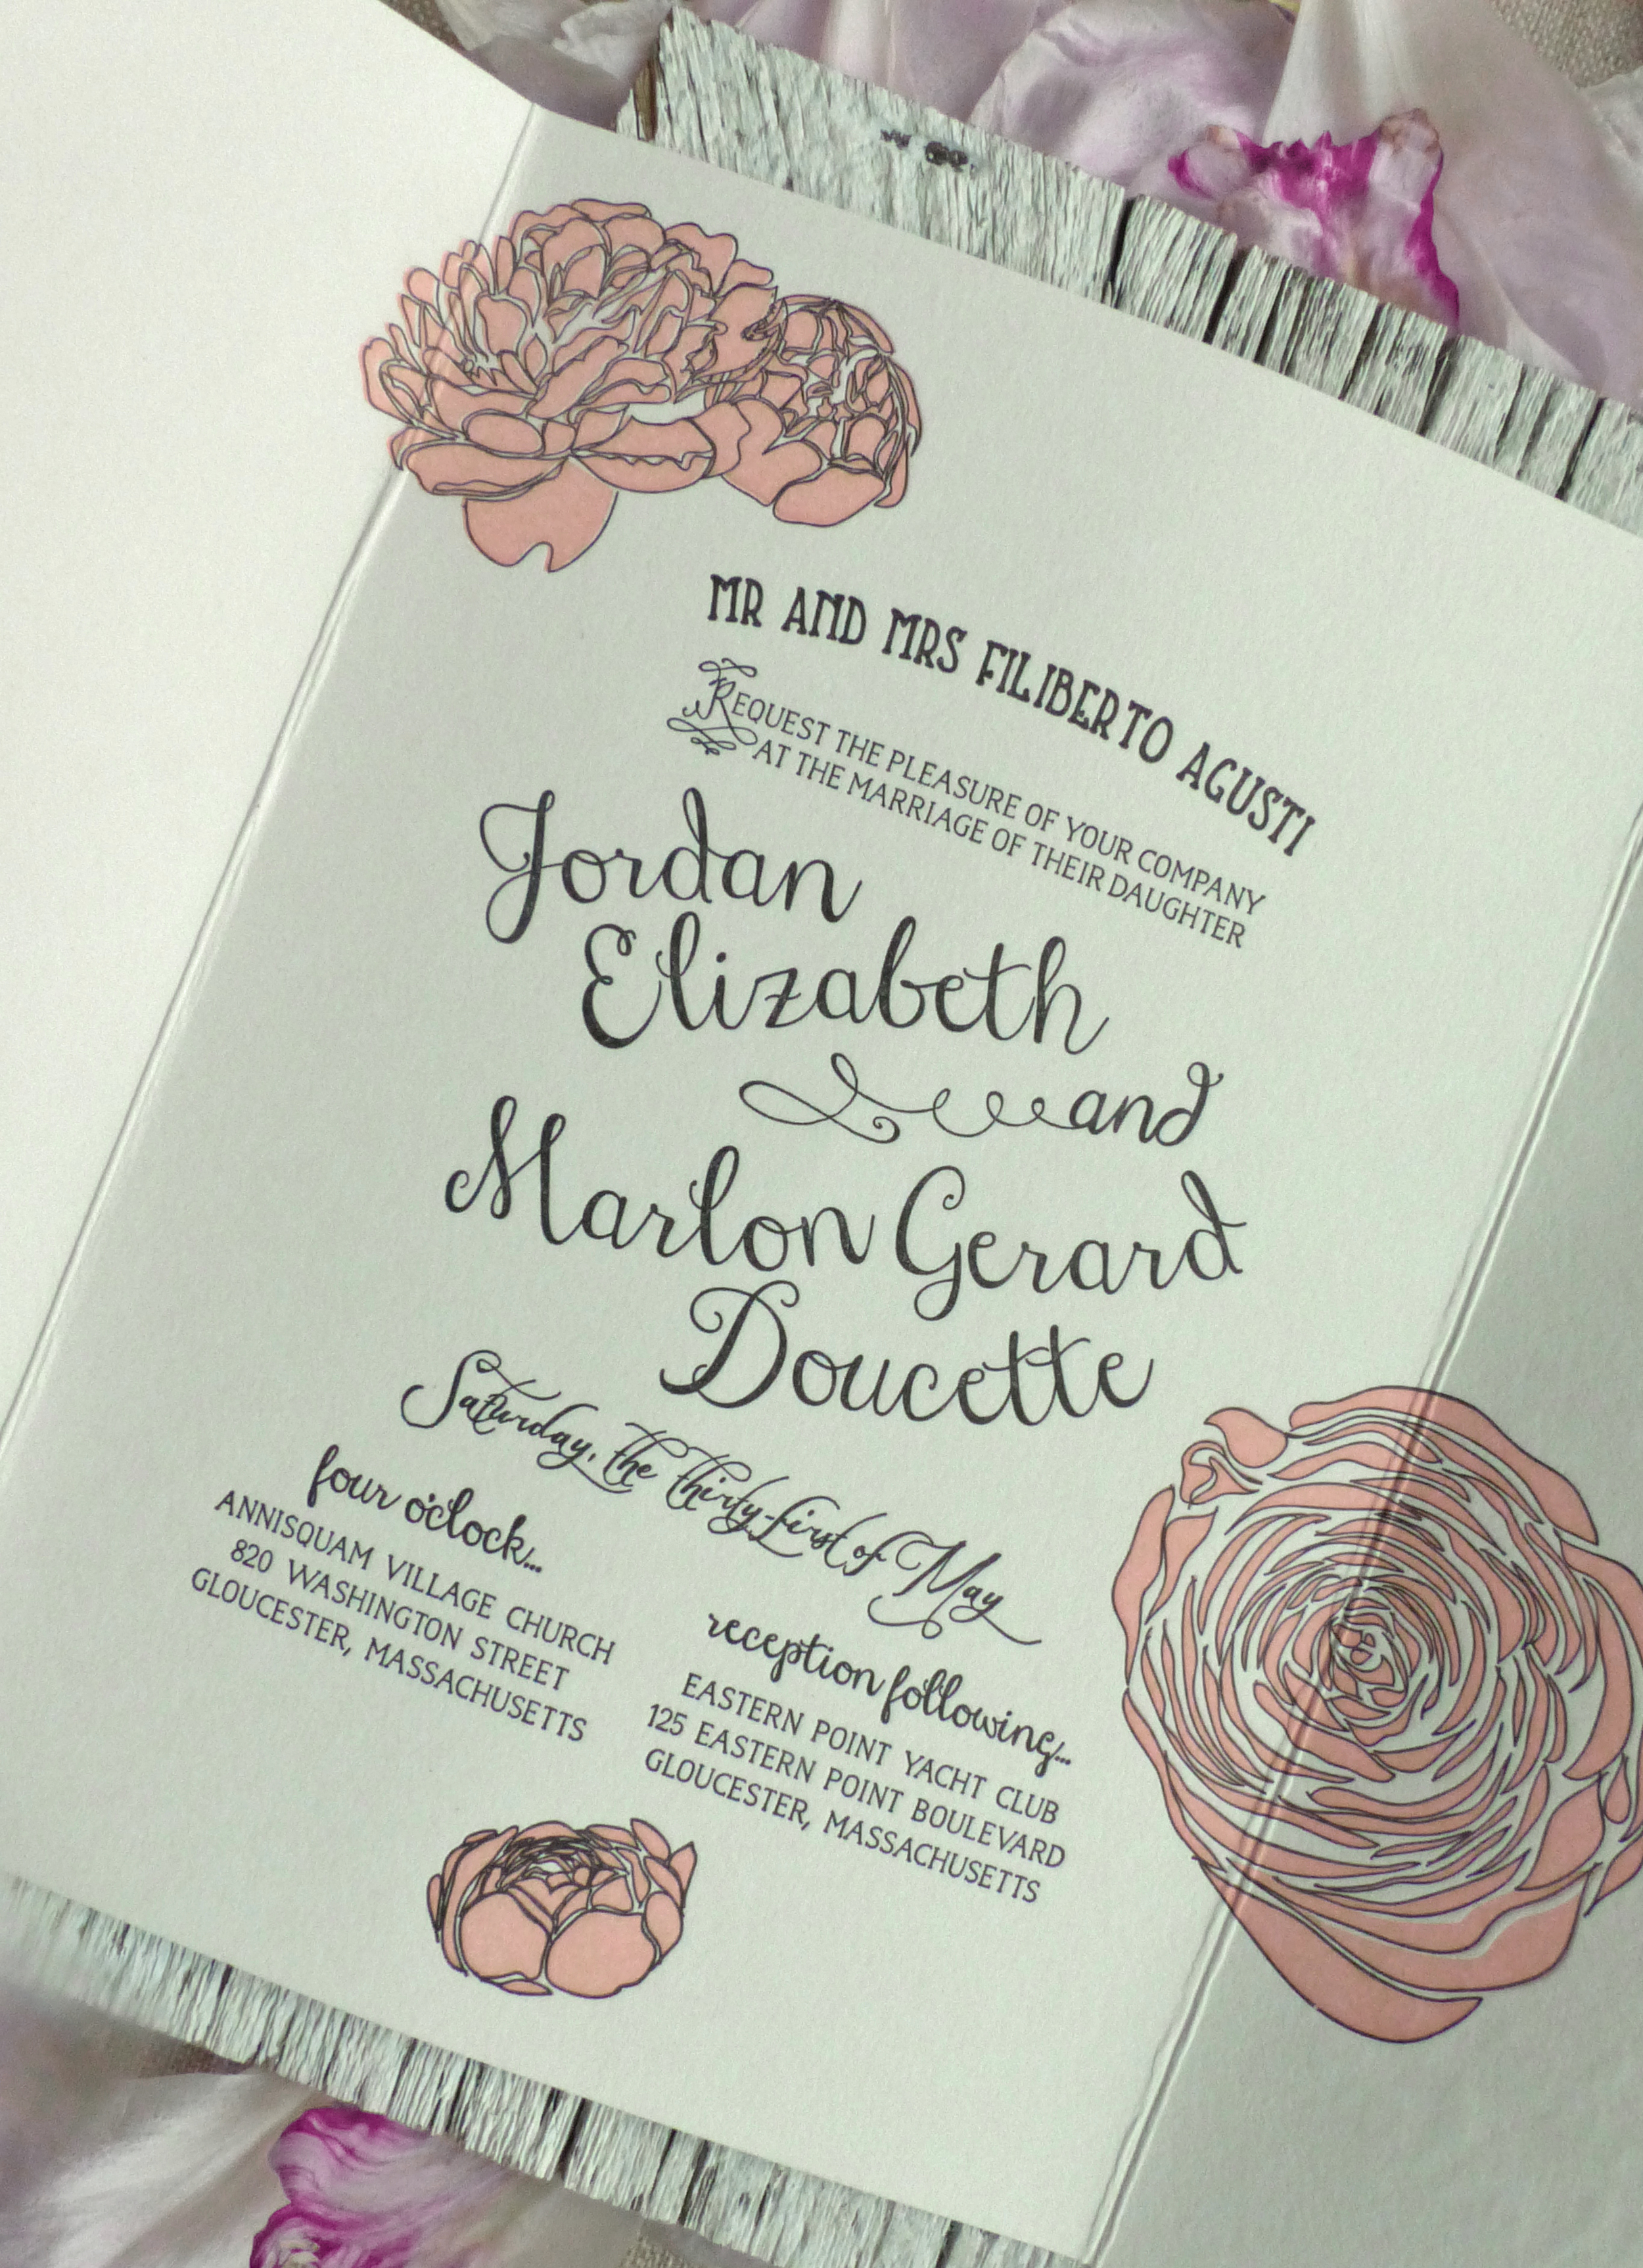 MR AND MRS FILIBERTO AGUSTI
REQUEST THE PLEASURE OF YOUR COMPANY
AT THE MARRIAGE OF THEIR DAUGHTER
Jordan
Elizabeth
and
Marlon Gerard
Doucette
Saturday, the thirty-first of May
four o'clock...
ANNISQUAM VILLAGE CHURCH
820 WASHINGTON STREET
GLOUCESTER, MASSACHUSETTS
reception following...
EASTERN POINT YACHT CLUB
125 EASTERN POINT BOULEVARD
GLOUCESTER, MASSACHUSETTS